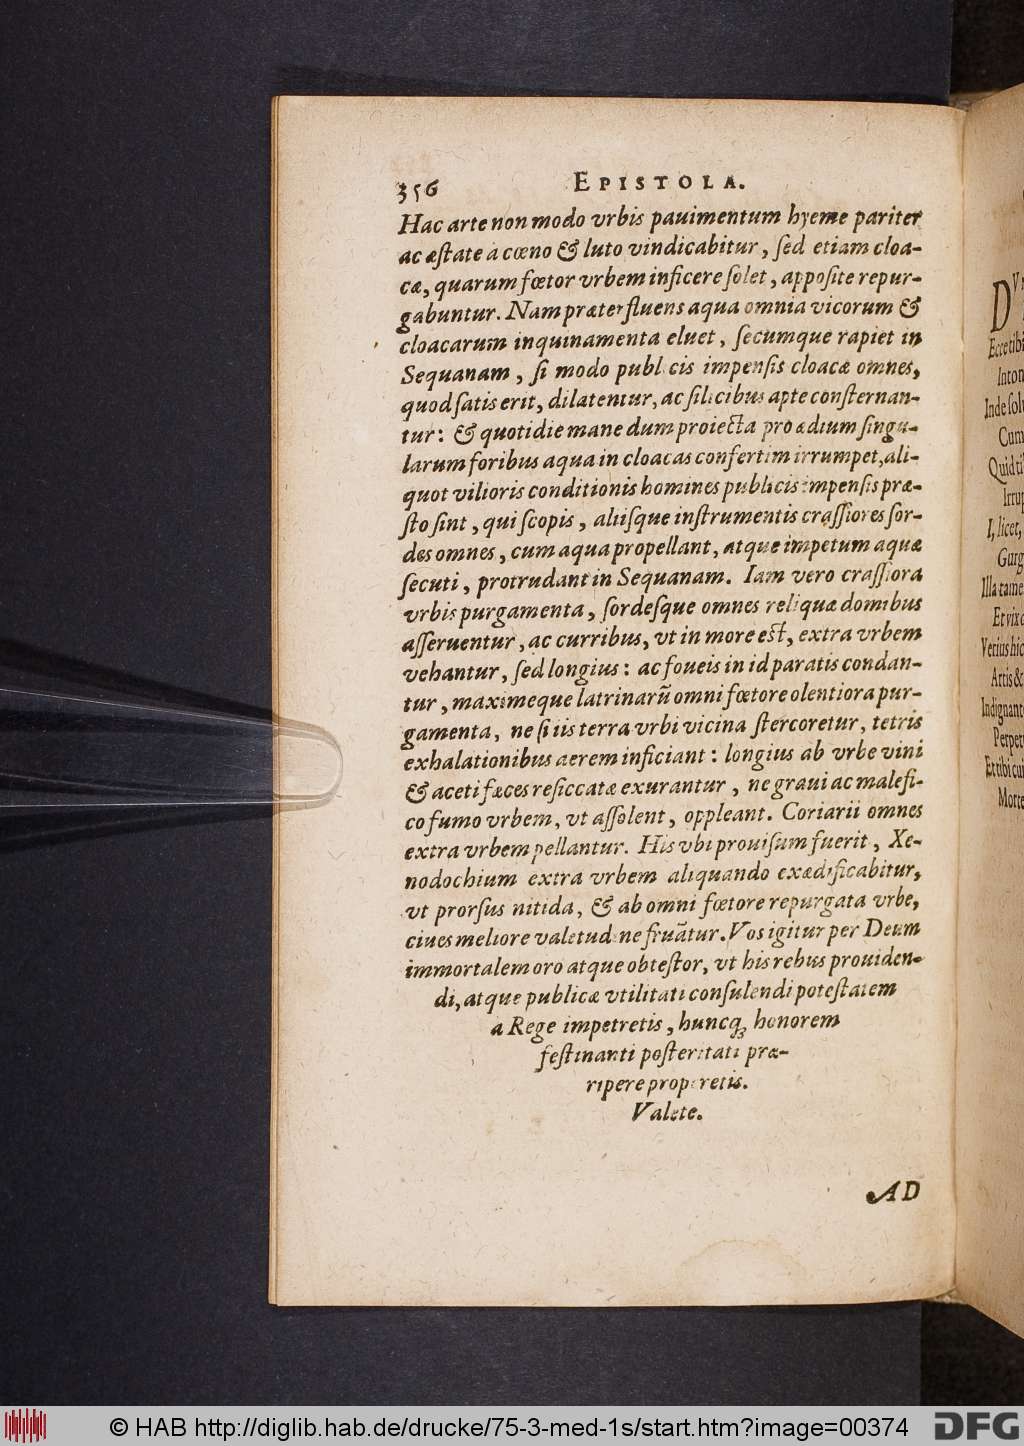 356 EPISTOLA.
Hac arte non modo vrbis pauimentum hyeme pariter
ac æstate à cœno & luto vindicabitur, sed etiam cloa-
cæ, quarum fœtor vrbem inficere solet, apposite repur-
gabuntur. Nam præterfluens aqua omnia vicorum &
cloacarum inquinamenta eluet, secumque rapiet in
Sequanam, si modo publicis impensis cloacæ omnes,
quod satis erit, dilatentur, ac silicibus apte consternan-
tur: & quotidie mane dum proiecta pro ædium singu-
larum foribus aqua in cloacas confertim irrumpet, ali-
quot vilioris conditionis homines publicis impensis præ-
sto sint, qui scopis, aliisque instrumentis crassiores sor-
des omnes, cum aqua propellant, atque impetum aquæ
secuti, protrudant in Sequanam. Iam vero crassiora
vrbis purgamenta, sordesque omnes reliquæ domibus
asseruentur, ac curribus, vt in more est, extra vrbem
vehantur, sed longius: ac foueis in id paratis condan-
tur, maximeque latrinarũ omni fœtore olentiora pur-
gamenta, ne si iis terra vrbi vicina stercoretur, tetris
exhalationibus aerem inficiant: longius ab vrbe vini
& aceti fæces resiccatæ exurantur, ne graui ac malefi-
co fumo vrbem, vt assolent, oppleant. Coriarii omnes
extra vrbem pellantur. His vbi prouisum fuerit, Xe-
nodochium extra vrbem aliquando exædificabitur,
vt prorsus nitida, & ab omni fœtore repurgata vrbe,
ciues meliore valetudine fruãtur. Vos igitur per Deum
immortalem oro atque obtestor, vt his rebus prouiden-
di, atque publicæ vtilitati consulendi potestatem
a Rege impetretis, huncq; honorem
festinanti posteritati præ-
ripere properetis.
Valete.
AD
D
Eccetibi
Inton
Inde sol
Cum
Quid ti
Irrup
I, licet,
Gurg
Illa tame
Et vix
Verius hic
Artis &
Indignant
Perpet
Et tibi cui
Morte
© HAB http://diglib.hab.de/drucke/75-3-med-1s/start.htm?image=00374
DFG